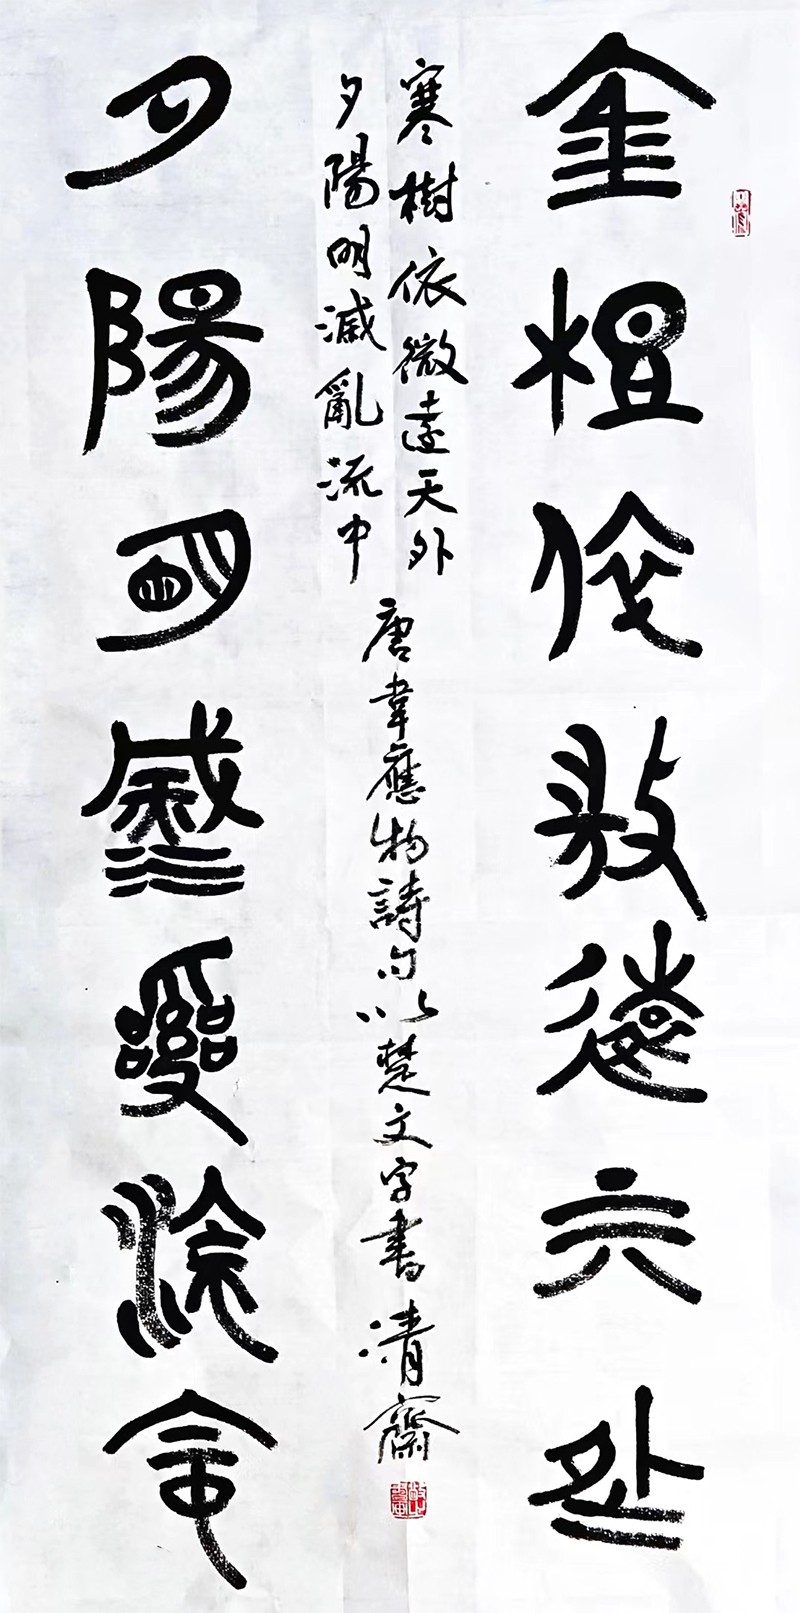 寒樹依微遠天外
夕陽明滅亂流中
寒樹依微遠天外
夕陽明滅亂流中
唐韋應物詩句以楚文字書 清齋